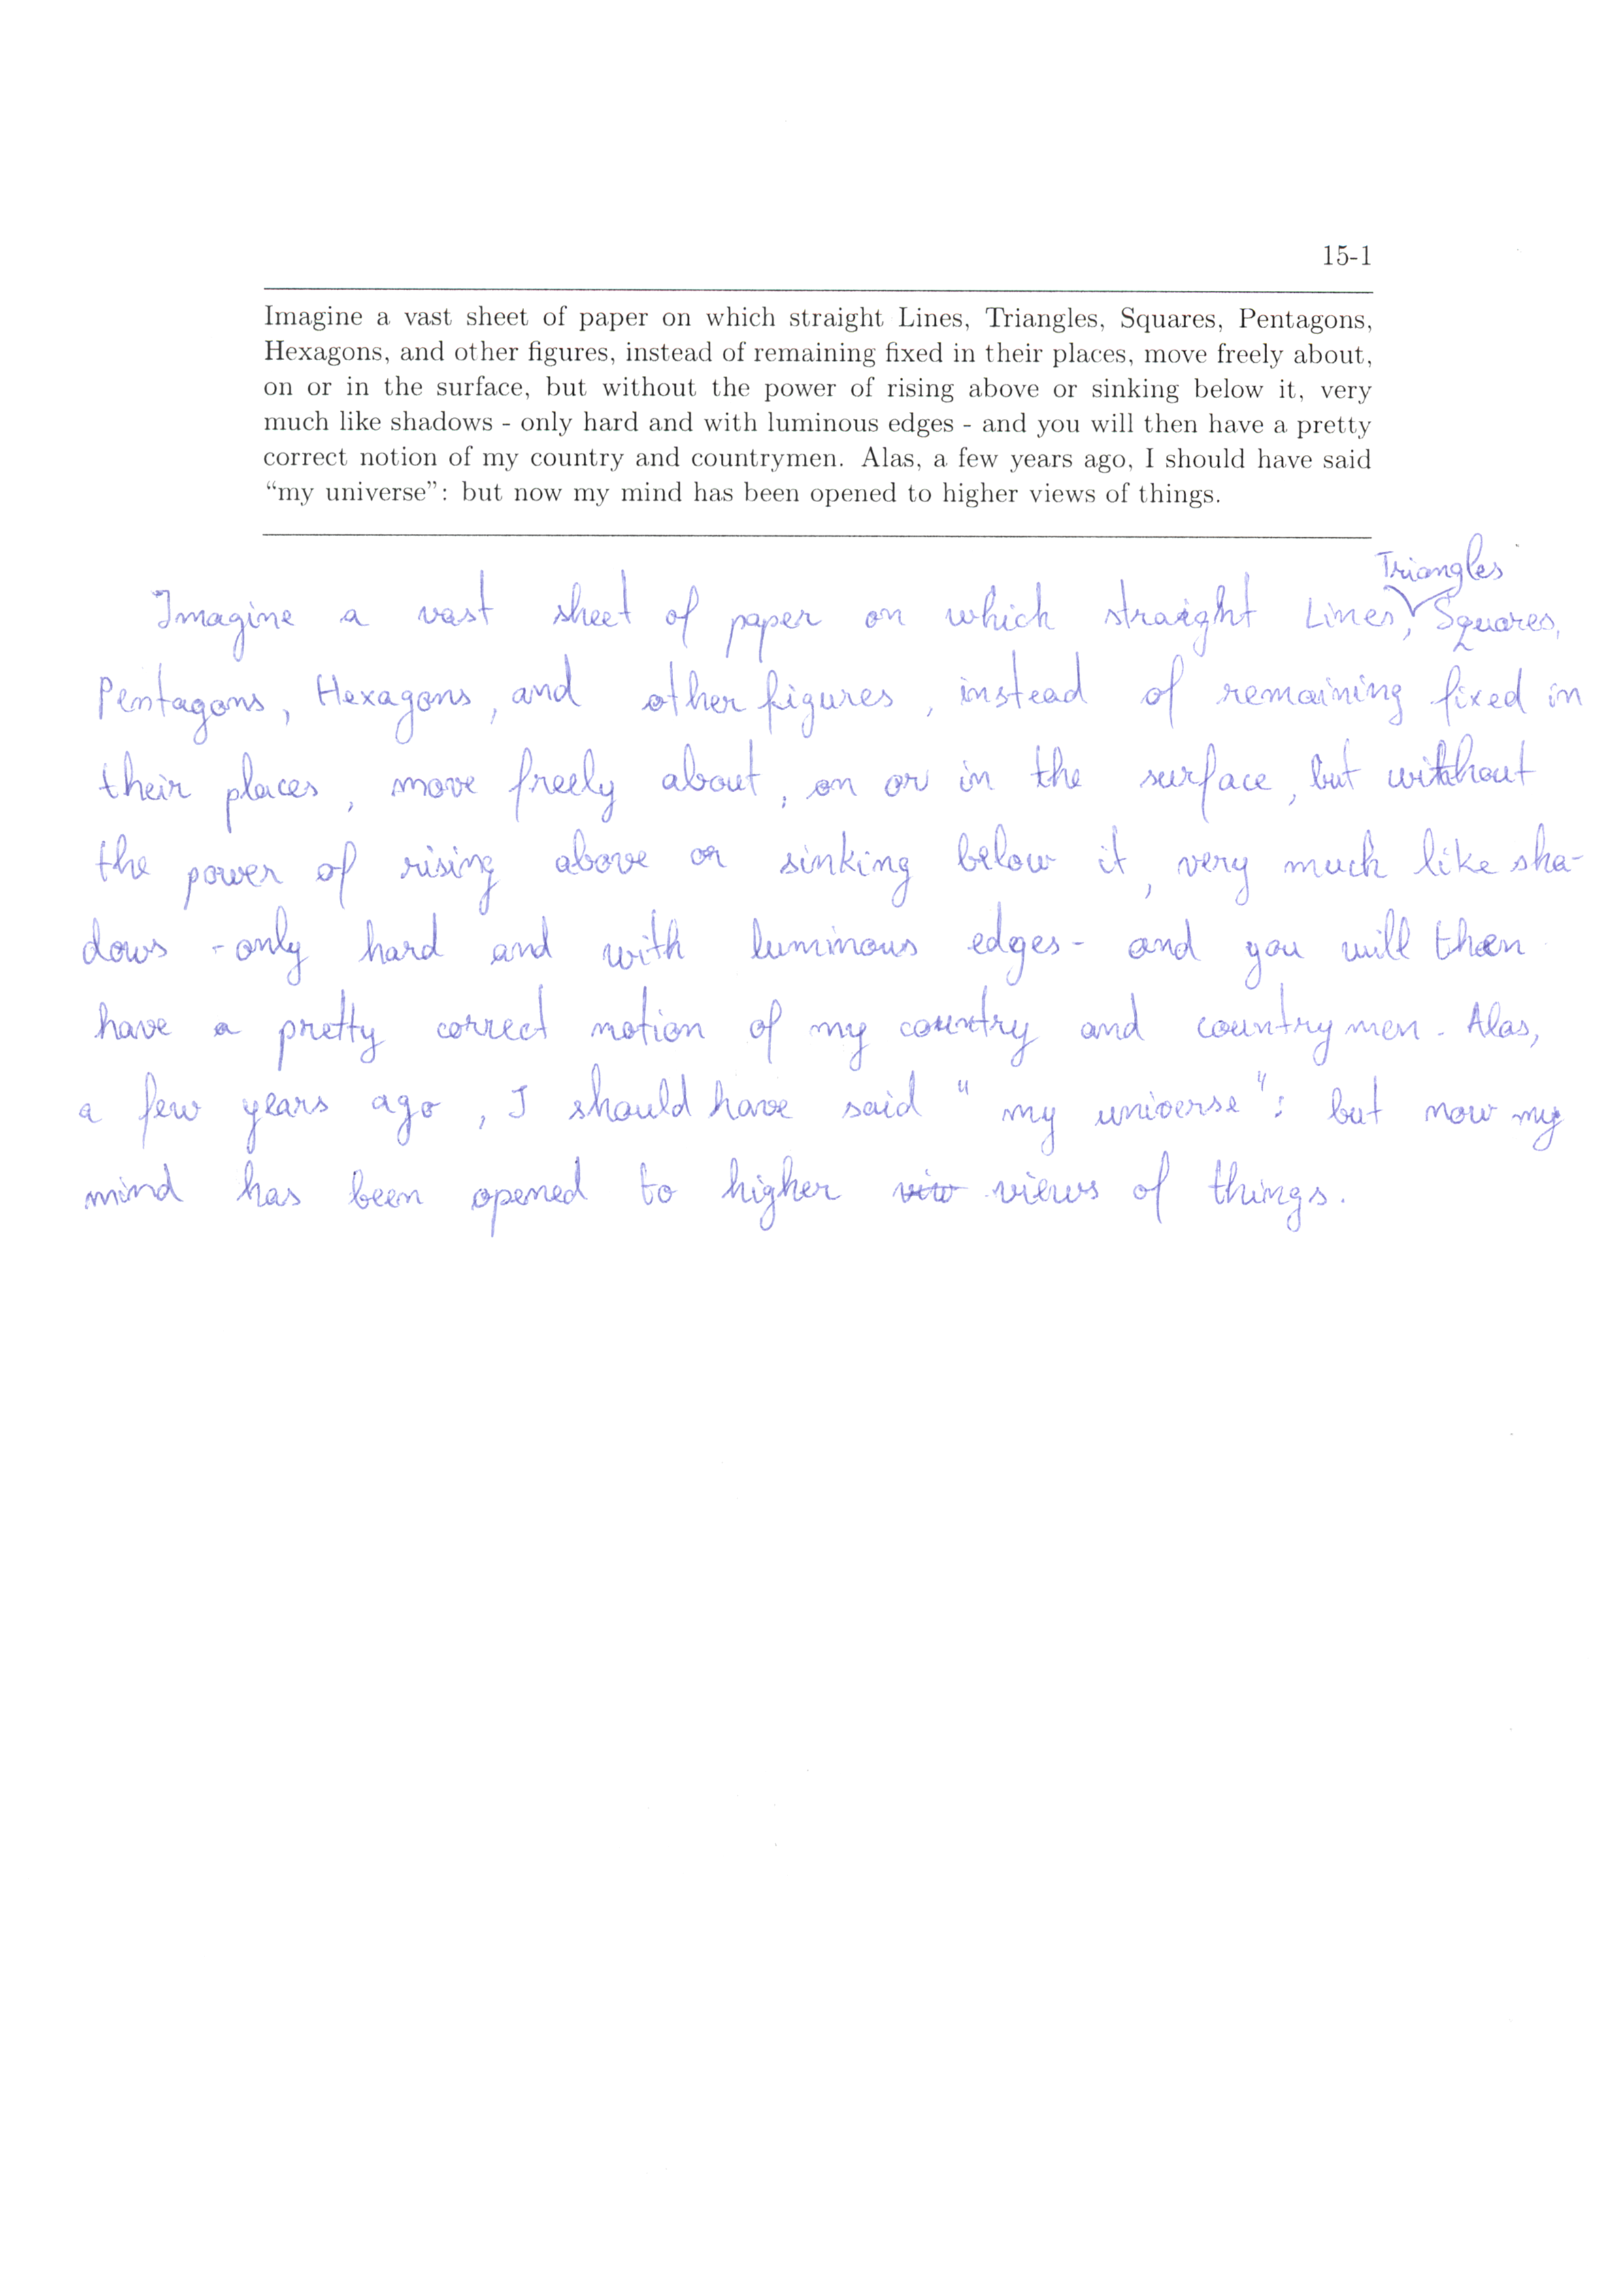 15-1
Imagine a vast sheet of paper on which straight Lines, Triangles, Squares, Pentagons,
Hexagons, and other figures, instead of remaining fixed in their places, move freely about,
on or in the surface, but without the power of rising above or sinking below it, very
much like shadows - only hard and with luminous edges - and you will then have a pretty
correct notion of my country and countrymen. Alas, a few years ago, I should have said
“my universe”: but now my mind has been opened to higher views of things.
Triangles
Imagine a vast sheet of paper on which straight Lines, Squares,
Pentagons, Hexagons, and other figures, instead of remaining fixed in
their places, move freely about, on or in the surface, but without
the power of rising above or sinking below it, very much like sha-
dows - only hard and with luminous edges - and you will then
have a pretty correct notion of my country and countrymen. Alas,
a few years ago, I should have said "my universe": but now my
mind has been opened to higher viw views of things.